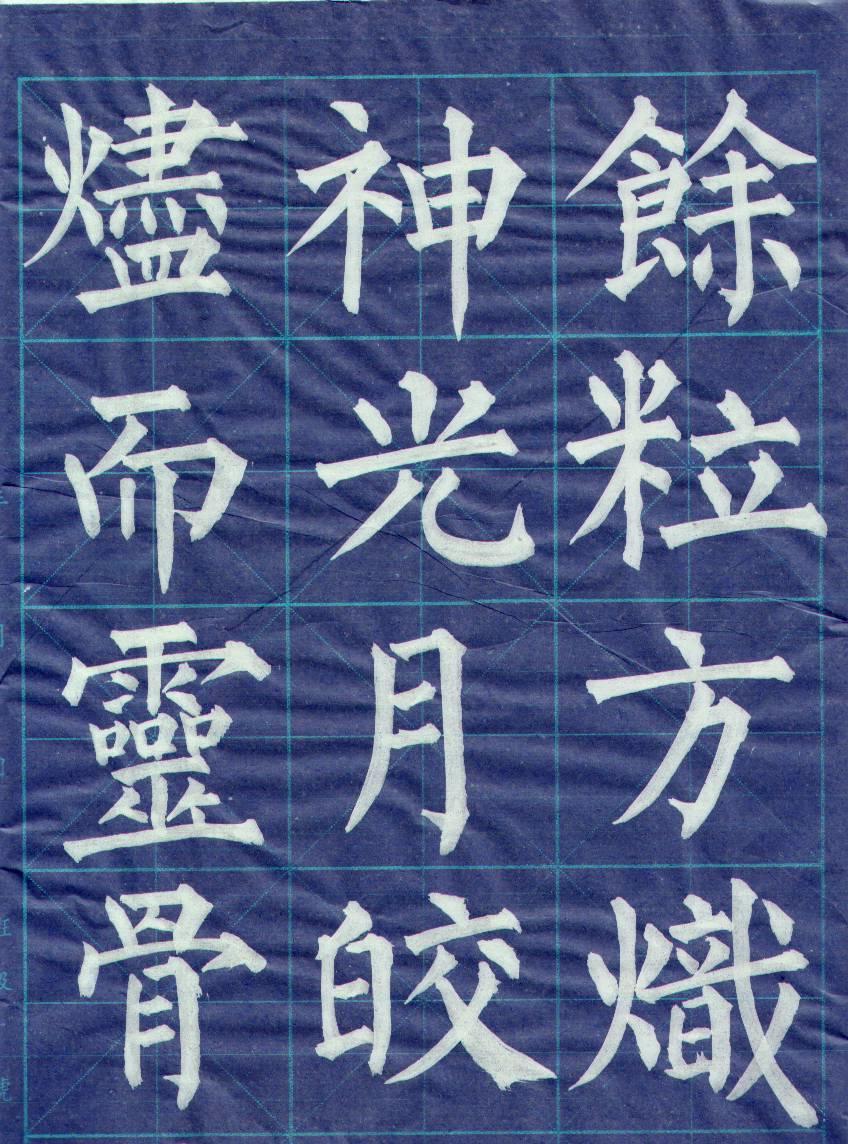 餘粒方熾
神光月皎
燼而靈骨